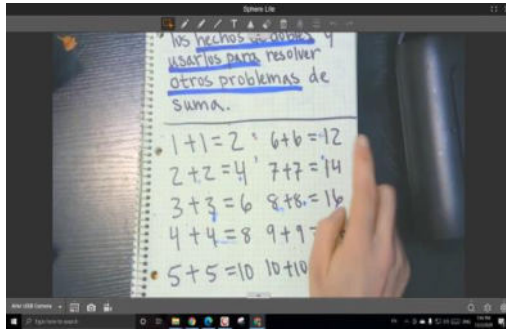 Sphere Lite
los hechos de dobles y
usarlos para resolver
otros problemas de
suma.
1+1=2 6+6=12
2+2=4 7+7=14
3+3=6 8+8=16
4+4=8 9+9=
5+5=10 10+10
Type here to search